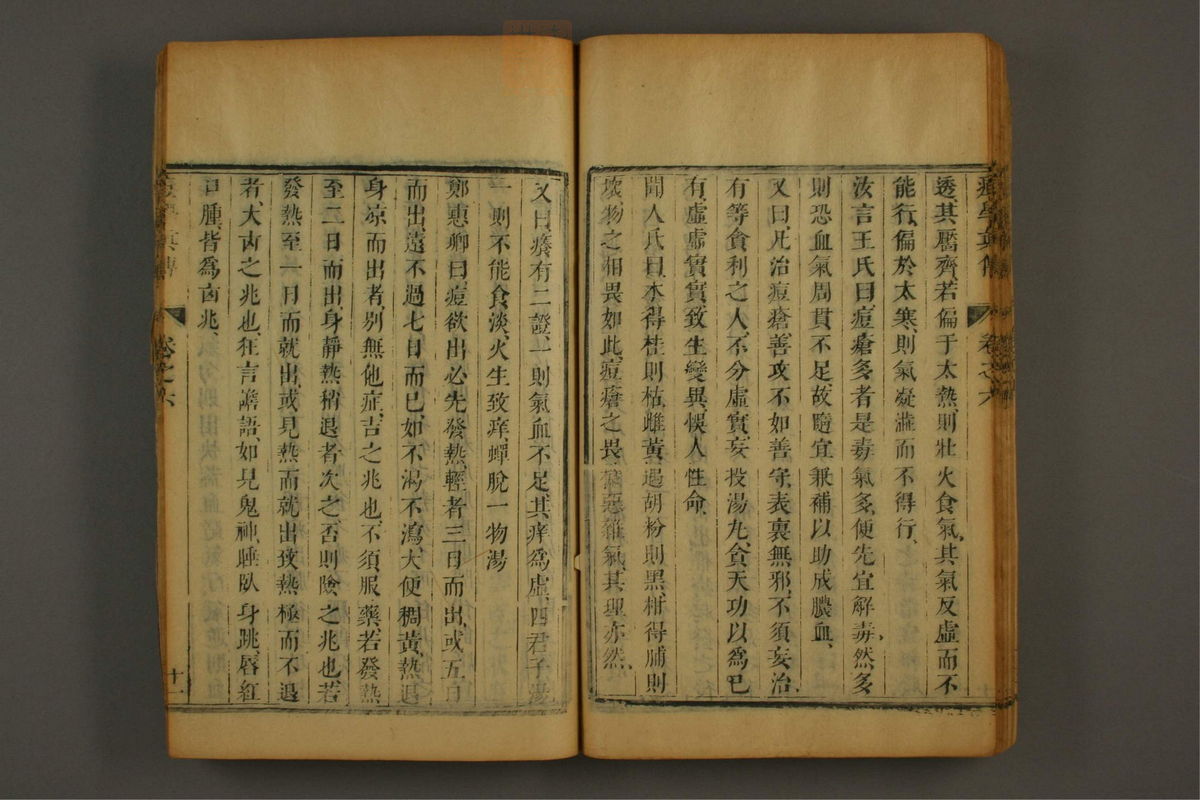 透其靨齊若偏于太熱則壯火食氣其氣反虛而不
能行偏於太寒則氣凝滯而不得行
汝言王氏曰痘瘡多者是毒氣多便先宜解毒然多
則恐血氣周貫不足故隨宜兼補以助成膿血
又曰凡治痘瘡善攻不如善守表裏無邪不須妄治
有等貪利之人不分虛實妄投湯丸貪天功以爲已
有虛虛實實致生變異悞人性命
聞人氏曰木得桂則枯雌黃遇胡粉則黑柑得脯則
壞物之相畏如此痘瘡之畏穢惡雜氣其理亦然
卷之六
又曰癢有二證一則氣血不足其痒爲虛四君子湯
一則不能食淡火生致痒蟬脫一物湯
鄭惠卿曰痘欲出必先發熱輕者三日而出或五日
而出遠不過七日而已如不渴不瀉大便稠黃熱退
身凉而出者別無他症吉之兆也不須服藥若發熱
至二日而出身靜熱稍退者次之否則險之兆也若
發熱至一日而就出或見熱而就出致熱極而不退
者大凶之兆也狂言譫語如見鬼神睡臥身跳唇紅
口腫皆爲凶兆
卷之六
十一